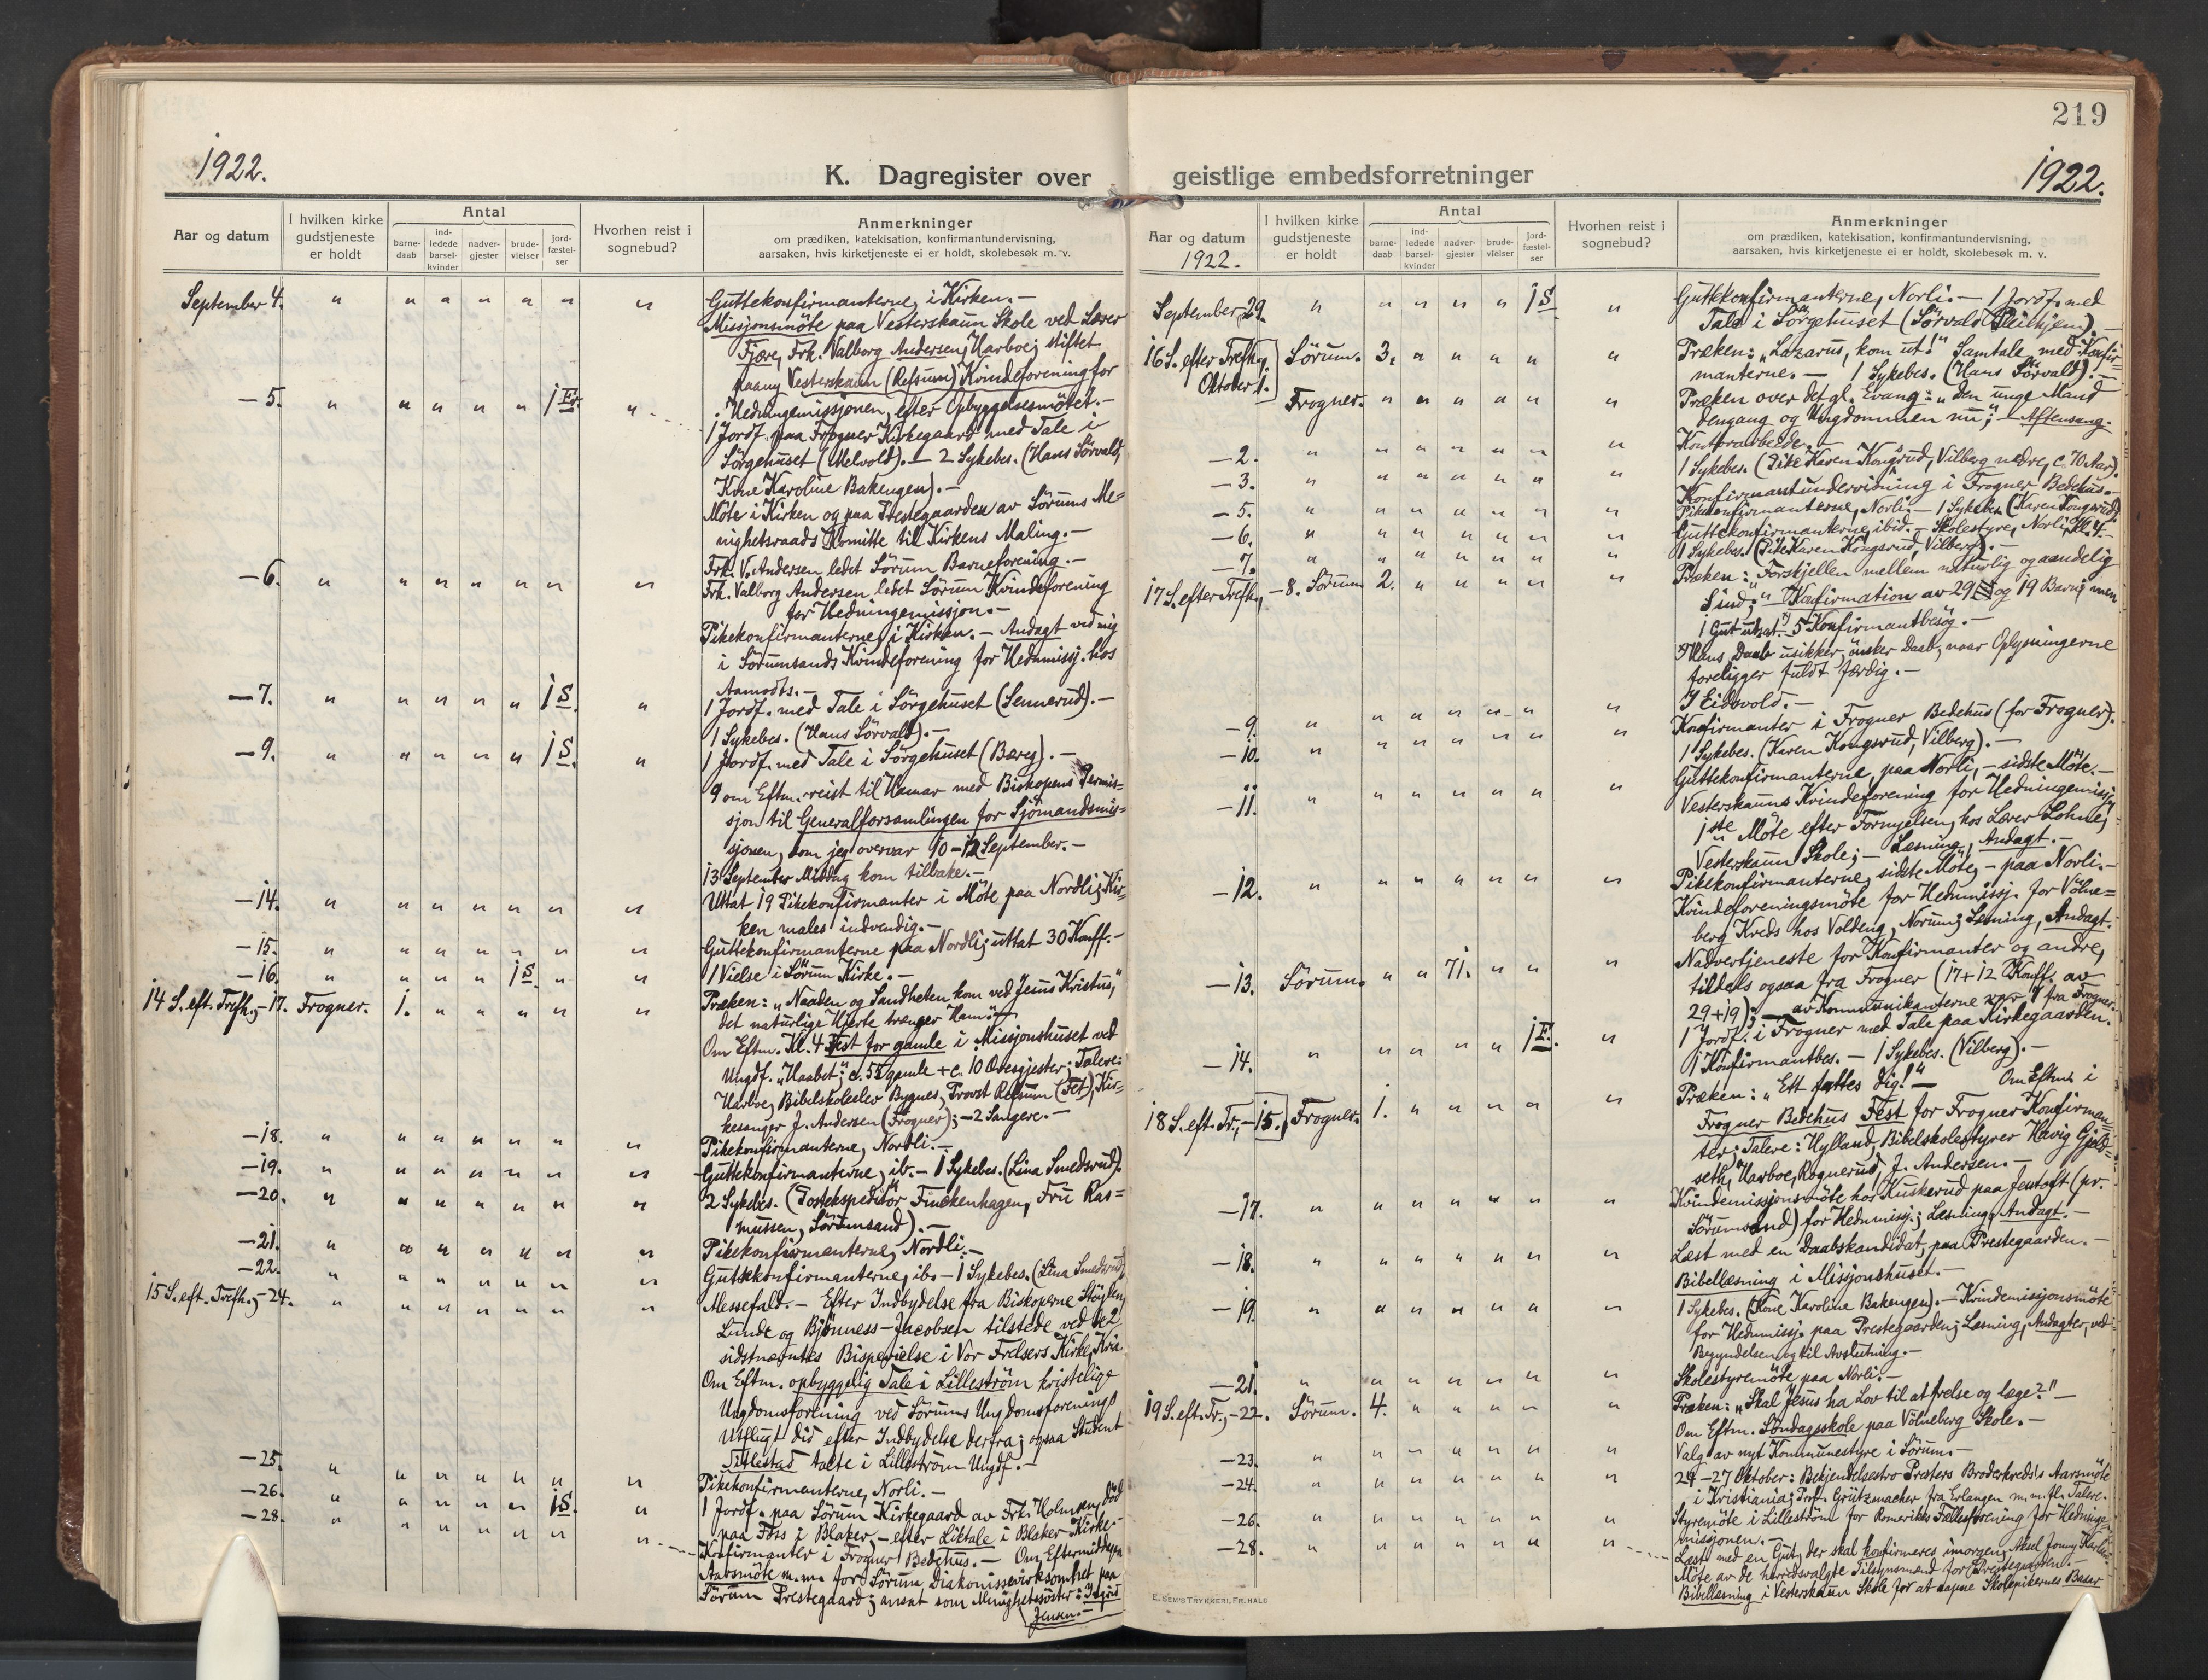 219
1922.
K. Dagregister over
geistlige embedsforretninger
1922.
Aar og datum
I hvilken kirke gudstjeneste er holdt
Antal
barnedaab
indledede barselkvinder
nadvergjester
brudevielser
jordfæstelser
Hvorhen reist i sognebud?
Anmerkninger
om prædiken, katekisation, konfirmantundervisning,
aarsaken, hvis kirketjeneste ei er holdt, skolebesøk m. v.
September 4. " " " " " " " Guttekonfirmanterne, i Kirken. —
Missjonsmöte paa Vesterskaun Skole ved Lærer
Fjære, Frk. Valborg Andersen, Harboe; stiftet
paany Vesterskaun (Refsum) Kvindeforening for
Hedningemissjonen, efter Opbyggelsesmötet. —
— 5. " " " " " 1 F. " 1 Jordf. paa Frogner Kirkegaard med Tale i
Sörgehuset (Melvold). — 2 Sykebes. (Hans Sörvald,
Kone Karoline Bakengen). —
Möte i Kirken og paa Prestegaarden av Sörums Me=
nighetsraads Komitte til Kirkens Maling. —
Frk. V. Andersen ledet Sörum Barneforening. —
— 6. " " " " " " " Frk. Valborg Andersen ledet Sörum Kvindeforening
for Hedningemissjon. —
Pikekonfirmanterne, i Kirken. — Andagt ved mig
i Sörumsands Kvindeforening for Hednmissj. hos
Aamodts. —
— 7. " " " " " 1 S. " 1 Jordf. med Tale i Sörgehuset (Sennerud). —
1 Sykebes. (Hans Sörvald). —
— 9. " " " " " 1 S. " 1 Jordf. med Tale i Sörgehuset (Bareg). —
9 om Eftm. reist til Hamar med Biskopens Permis=
sjon til Generalforsamlingen for Sjömandsmis=
sjonen, som jeg overvar 10–12 September. —
13 September Middag kom tilbake. —
— 14. " " " " " " " Uttat 19 Pikekonfirmanter i Möte paa Nordli; Kir=
ken males indvendig. —
— 15. " " " " " " " Guttekonfirmanterne paa Nordli; uttat 30 Konff. —
— 16. " " " " 1 S. " " 1 Vielse i Sörum Kirke. —
14 S. eft. Trefh., — 17. Frogner. 1. " " " " " Præken: „Naaden og Sandheten kom ved Jesus Kristus,"
det naturlige Hjerte trænger Ham. —
Om Eftm. Kl. 4 Fest for gamle i Missjonshuset ved
Ungdf. „Haabet"; c. 55 gamle + c. 10 Gjester; Talere:
Harboe, Bibelskoleelev Bygnes, Provst Refsum (Fet), Kir=
kesanger J. Andersen (Frogner); — 2 Sangere. —
— 18. " " " " " " " Pikekonfirmanterne, Nordli. —
— 19. " " " " " " " Guttekonfirmanterne, ib. — 1 Sykebes. (Lina Smedsrud).
— 20. " " " " " " " 2 Sykebes. (Postekspeditör Finckenhagen, Fru Ras=
mussen, Sörumsand). —
— 21. " " " " " " " Pikekonfirmanterne, Nordli. —
— 22. " " " " " " " Guttekonfirmanterne, ib. — 1 Sykebes. (Lina Smedsrud).
15 S. eft. Trefh., — 24. " " " " " " " Messefald. — Efter Indbydelse fra Biskoperne Stöylen,
Lunde og Bjönness-Jacobsen tilstede ved de 2
sidstnævntes Bispevielse i Vor Frelsers Kirke, Kra.
Om Eftm. opbyggelig Tale i Lilleström kristelige
Ungdomsforening ved Sörums Ungdomsforenings
Utflugt did efter Indbydelse derfra; ogsaa Student
Tillestad talte i Lilleström Ungdf. —
— 25. " " " " " " " Pikekonfirmanterne, Norli. —
— 26. " " " " " 1 S. " 1 Jordf. paa Sörum Kirkegaard av Frk. Holmsen, död
paa Foss i Blaker, — efter Liktale i Blaker Kirke. —
— 28. " " " " " " " Konfirmanter i Frogner Bedehus. — Om Eftermiddagen
Aarsmöte m. m. for Sörum Diakonissevirksomhet paa
Sörum Prestegaard; ansat som Menighetssöster: Ingrid
Jensen. —
Aar og datum
1922.
I hvilken kirke gudstjeneste er holdt
Antal
barnedaab
indledede barselkvinder
nadvergjester
brudevielser
jordfæstelser
Hvorhen reist i sognebud?
Anmerkninger
om prædiken, katekisation, konfirmantundervisning,
aarsaken, hvis kirketjeneste ei er holdt, skolebesøk m. v.
September 29. " " " " " 1 S. " Guttekonfirmanterne, Norli. — 1 Jordf. med
Tale i Sörgehuset (Sörvald). —
16 S. efter Trefh., Oktober 1. Sörum. 3. " " " " " Præken: „Lazarus, kom ut!" Samtale med Konfir=
manterne. — 1 Sykebes. (Hans Sörvald). —
Frogner. " " " " " " Præken over det gl. Evang.: „Den unge Mand
dengang og Ungdommen nu"; — Aftensang. —
— 2. " " " " " " " Kontorarbeide. —
1 Sykebes. (Pike Karen Kongsrud, Vilberg nedre, c. 70 Aar).
— 3. " " " " " " " Konfirmantundervisning i Frogner Bedehus. —
— 5. " " " " " " " Pikekonfirmanterne, Norli. — 1 Sykebes. (Karen Kongsrud).
— 6. " " " " " " " Guttekonfirmanterne, ibid. — Skolestyre, Norli, Kl. 4. —
— 7. " " " " " " " 1 Sykebes. (Pike Karen Kongsrud, Vilberg). —
17 S. efter Trefh., — 8. Sörum 2. " " " " " Præken: „Forskjellen mellem naturlig og aandelig
Sind;" — Konfirmation av 29 og 19 Barn; men
1 Gut utsat. 5 Konfirmantbesög. —
Hans Daab usikker, önsker Daab, naar Oplysningerne
foreligger fuldt færdig. —
— 9. " " " " " " " I Eidsvold. —
— 10. " " " " " " " Konfirmanter i Frogner Bedehus (for Frogner).
1 Sykebes. (Karen Kongsrud, Vilberg). —
— 11. " " " " " " " Guttekonfirmanterne, paa Norli, — sidste Möte. —
Vesterskauns Kvindeforening for Hedningemissj.
1ste Möte efter Fornyelsen, hos Lærer Lohne,
Vesterskaun Skole; — Læsning, Andagt. —
— 12. " " " " " " " Pikekonfirmanterne, sidste Möte, — paa Norli. —
Kvindeforeningsmöte for Hednmissj. for Völne=
berg Kreds hos Voldeng, Norum; Læsning, Andagt. —
— 13. Sörum. " " 71. " " " Nadvertjeneste for Konfirmanter og andre,
tildels ogsaa fra Frogner (17+12 Konff. av
29+19); — av Kommunikanterne var 9 fra Frogner.
— 14. " " " " " 1 F. " 1 Jordf. i Frogner med Tale paa Kirkegaarden.
1 Konfirmantbes. — 1 Sykebes. (Vilberg). —
18 S. eft. Tr., — 15. Frogner. 1. " " " " " Præken: „Ett fattes dig!" — Om Eftm. i
Frogner Bedehus Fest for Frogner Konfirman=
ter; Talere: Hylland, Bibelskolestyrer Havig Gjel=
seth, Harboe, Rognerud, J. Andersen. —
— 17. " " " " " " " Kvindemissjonsmöte hos Kuskerud paa Jentoft (pr.
Sörumsand) for Hednmissj.; Læsning, Andagt. —
— 18. " " " " " " " Læst med en Daabskandidat, paa Prestegaarden. —
Bibellæsning i Missjonshuset. —
— 19. " " " " " " " 1 Sykebes. (Kone Karoline Bakengen). — Kvindemissjonsmöte
for Hednmissj. paa Prestegaarden; Læsning, Andagter, ved
Begyndelsen og til Avslutning. —
— 21. " " " " " " " Skolestyremöte paa Norli. —
19 S. eft. Tr., — 22. Sörum. 4. " " " " " Præken: „Skal Jesus ha Lov til at frelse og læge?" —
Om Eftm. Söndagsskole paa Völneberg Skole. —
— 23. " " " " " " " Valg av nyt Kommunestyre i Sörum. —
— 24. " " " " " " " 24–27 Oktober: Bekjendelsestro Presters Broderkreds's Aarsmöte
i Kristiania; Prof. Grützmacher fra Erlangen m. m. fl. Talere.
— 26. " " " " " " " Styremöte i Lilleström for Romerikes Fællesforening for Hedninge=
missjonen. —
— 28. " " " " " " " Læst med en Gut, der skal konfirmeres imorgen, Aksel Jonny
Möte av de herredsvalgte Tilsynsmænd for Prestegaarden. —
Bibellæsning i Vesterskaun Skole for at aapne Skolepikernes Basar
E. SEM'S TRYKKERI, FR.HALD